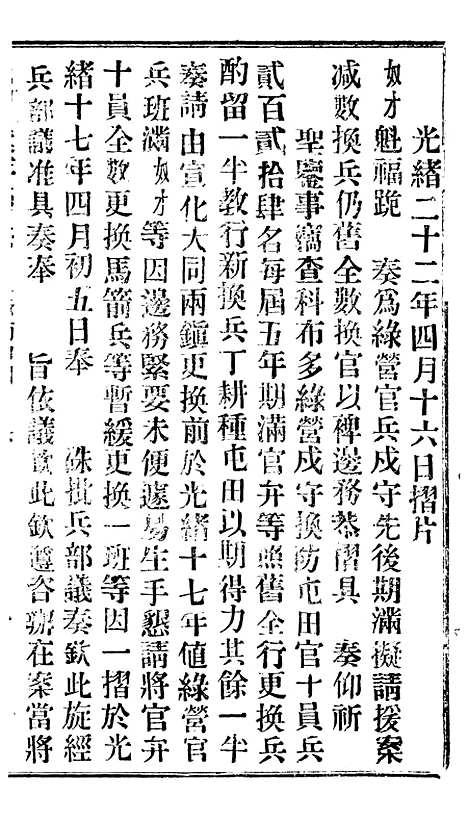 光緒二十二年四月十六日摺片
奴才魁福跪　奏爲綠營官兵戍守先後期滿擬請援案
減數換兵仍舊全數換官以裨邊務恭摺具　奏仰祈
聖鑒事竊查科布多綠營戍守換防屯田官十員兵
貳百貳拾肆名每屆五年期滿官弁等照舊全行更換兵
酌留一半教行新換兵丁耕種屯田以期得力其餘一半
奏請由宣化大同兩鎮更換前於光緒十七年値綠營官
兵班滿奴才等因邊務緊要未便遽易生手懇請將官弁
十員全數更換馬箭兵等暫緩更換一班等因一摺於光
緒十七年四月初五日奉　硃批兵部議奏欽此旋經
兵部議准具奏奉　旨依議欽此欽遵咨辦在案當將